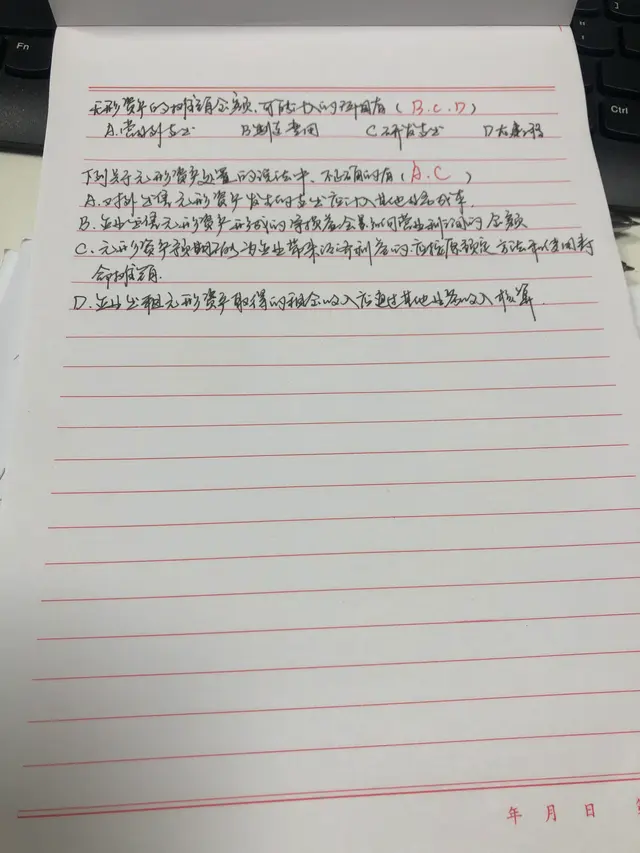 Fn
Ctrl
无形资产的摊销金额,可能计入的科目有(B.C.D)
A.营业外支出 B制造费用 C研发支出 D在建工程
下列关于无形资产处置的说法中,不正确的有(A.C)
A.对外出售无形资产发生的支出应计入其他业务成本.
B.企业出售无形资产形成的净损益会影响营业利润的金额
C.无形资产预期不能为企业带来经济利益的应按原预定方法和使用寿
命摊销.
D.企业出租无形资产取得的租金收入应通过其他业务收入核算.
年 月 日